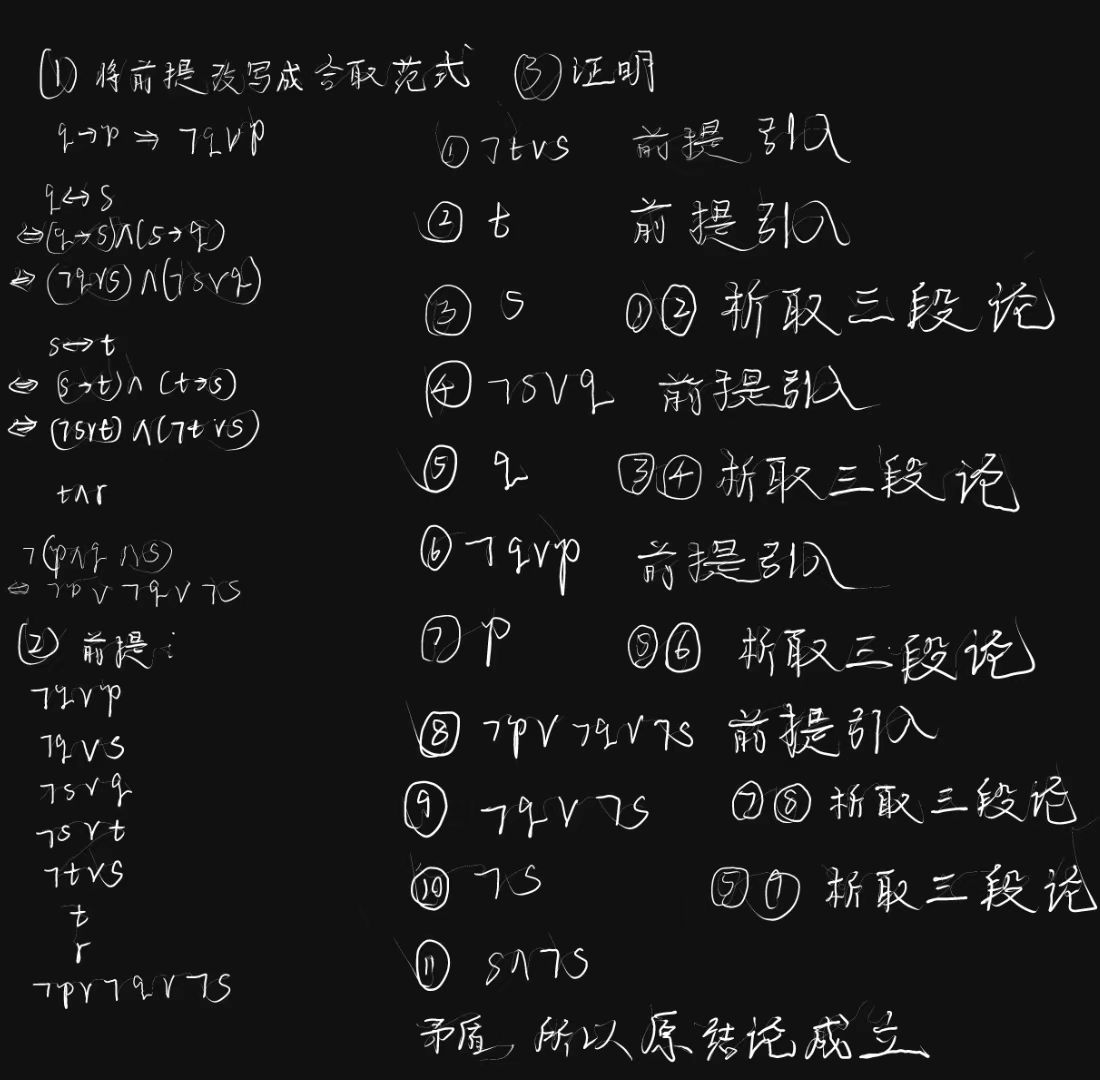 (1) 将前提改写成合取范式
q→p ⇒ ¬q∨p
q↔s
⇔(q→s)∧(s→q)
⇔(¬q∨s)∧(¬s∨q)
s↔t
⇔(s→t)∧(t→s)
⇔(¬s∨t)∧(¬t∨s)
t∧r
¬(p∧q∧s)
⇔¬p∨¬q∨¬s
(2) 前提:
¬q∨p
¬q∨s
¬s∨q
¬s∨t
¬t∨s
t
r
¬p∨¬q∨¬s
(3) 证明
① ¬t∨s 前提引入
② t 前提引入
③ s ①② 析取三段论
④ ¬s∨q 前提引入
⑤ q ③④ 析取三段论
⑥ ¬q∨p 前提引入
⑦ p ⑤⑥ 析取三段论
⑧ ¬p∨¬q∨¬s 前提引入
⑨ ¬q∨¬s ⑦⑧ 析取三段论
⑩ ¬s ⑤⑨ 析取三段论
⑪ s∧¬s
矛盾, 所以原结论成立